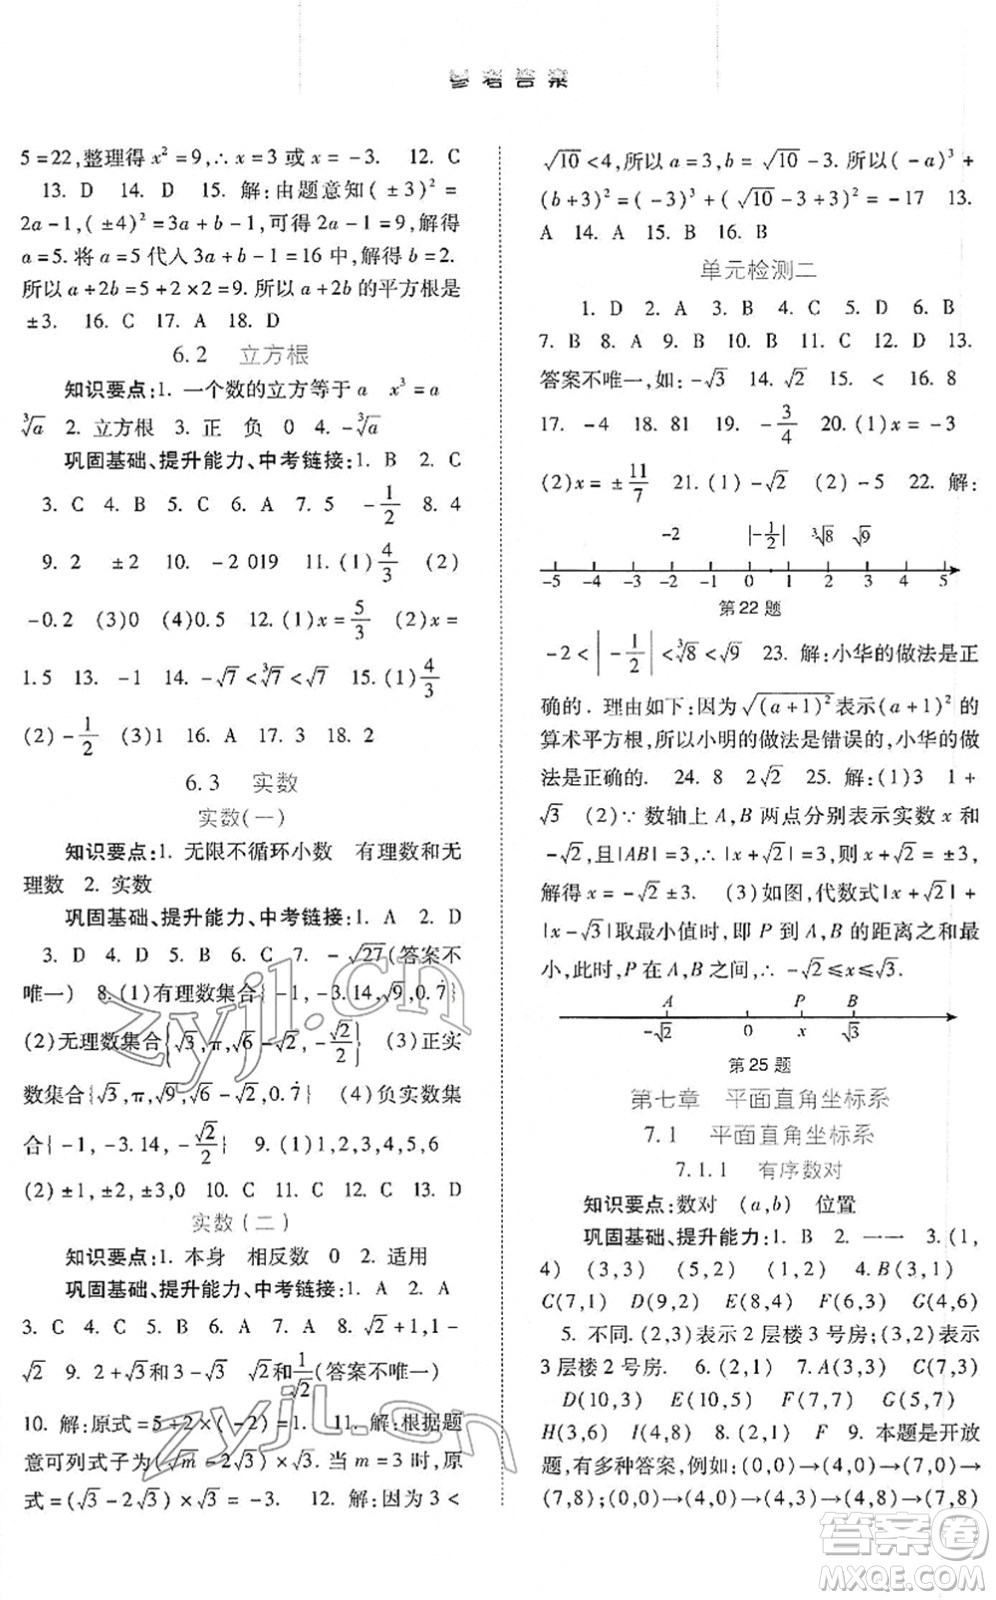 参考答案
5=22,整理得 x²=9,∴x=3 或 x=-3. 12. C
13. D 14. D 15. 解:由题意知(±3)²=
2a-1,(±4)²=3a+b-1,可得 2a-1=9,解得
a=5. 将 a=5 代入 3a+b-1=16 中,解得 b=2.
所以 a+2b=5+2×2=9. 所以 a+2b 的平方根是
±3. 16. C 17. A 18. D
6.2 立方根
知识要点:1. 一个数的立方等于 a x³=a
∛a 2. 立方根 3. 正 负 0 4. -∛a
巩固基础、提升能力、中考链接:1. B 2. C
3. C 4. B 5. C 6. A 7. 5 -1/2 8. 4
9. 2 ±2 10. -2 019 11. (1)4/3 (2)
-0.2 (3)0 (4)0.5 12. (1)x=5/3 (2)x=
1.5 13. -1 14. -√7<∛7<√7 15. (1)4/3
(2)-1/2 (3)1 16. A 17. 3 18. 2
6.3 实数
实数(一)
知识要点:1. 无限不循环小数 有理数和无
理数 2. 实数
巩固基础、提升能力、中考链接:1. A 2. D
3. D 4. D 5. B 6. C 7. -√27(答案不
唯一) 8. (1)有理数集合{-1,-3.14,√9,0.7̇}
(2)无理数集合{√3,π,√6-√2,-√2/2} (3)正实
数集合{√3,π,√9,√6-√2,0.7̇} (4)负实数集
合{-1,-3.14,-√2/2} 9. (1)1,2,3,4,5,6
(2)±1,±2,±3,0 10. C 11. C 12. C 13. D
实数(二)
知识要点:1. 本身 相反数 0 2. 适用
巩固基础、提升能力、中考链接:1. A 2. A
3. C 4. C 5. B 6. A 7. A 8. √2+1,1-
√2 9. 2+√3和3-√3 √2和1/√2(答案不唯一)
10. 解:原式=5+2×(-2)=1. 11. 解:根据题
意可列式子为(√m-2√3)×√3. 当 m=3 时,原
式=(√3-2√3)×√3=-3. 12. 解:因为 3<
√10<4,所以 a=3,b=√10-3. 所以(-a)³+
(b+3)²=(-3)³+(√10-3+3)²=-17 13.
A 14. A 15. B 16. B
单元检测二
1. D 2. A 3. B 4. C 5. D 6. B
7. B 8. A 9. B 10. B 11. C 12. D 13.
答案不唯一,如:-√3 14. √2 15. < 16. 8
17. -4 18. 81 19. -3/4 20. (1)x=-3
(2)x=±11/7 21. (1)-√2 (2)-5 22. 解:
-2 |-1/2| ∛8 √9
-5 -4 -3 -2 -1 0 1 2 3 4 5
第22题
-2<|-1/2|<∛8<√9 23. 解:小华的做法是正
确的. 理由如下:因为√(a+1)²表示(a+1)²的
算术平方根,所以小明的做法是错误的,小华的做
法是正确的. 24. 8 2√2 25. 解:(1)3 1+
√3 (2)∵数轴上 A,B 两点分别表示实数 x 和
-√2,且|AB|=3,∴|x+√2|=3,则 x+√2=±3,
解得 x=-√2±3. (3)如图,代数式|x+√2|+
|x-√3|取最小值时,即 P 到 A,B 的距离之和最
小,此时,P 在 A,B 之间,∴-√2≤x≤√3.
A P B
-√2 0 x √3
第25题
第七章 平面直角坐标系
7.1 平面直角坐标系
7.1.1 有序数对
知识要点:数对 (a,b) 位置
巩固基础、提升能力:1. B 2. 一一 3. (1,
4) (3,3) (5,2) (1,2) 4. B(3,1)
C(7,1) D(9,2) E(8,4) F(6,3) G(4,6)
5. 不同. (2,3)表示 2 层楼 3 号房;(3,2)表示
3 层楼 2 号房. 6. (2,1) 7. A(3,3) C(7,3)
D(10,3) E(10,5) F(7,7) G(5,7)
H(3,6) I(4,4) 8. (2,1) F 9. 本题是开放
题,有多种答案,例如:(0,0)→(4,0)→(7,0)→
(7,8);(0,0)→(4,0)→(4,3)→(4,8)→(7,8)
zyjl.cn
zyjl.cn
答案圈
MXQE.COM